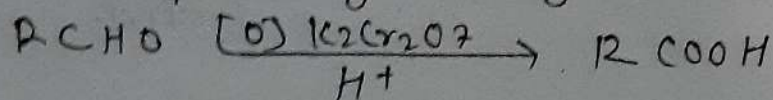 RCHO [O] K2Cr2O7 → RCOOH
H+